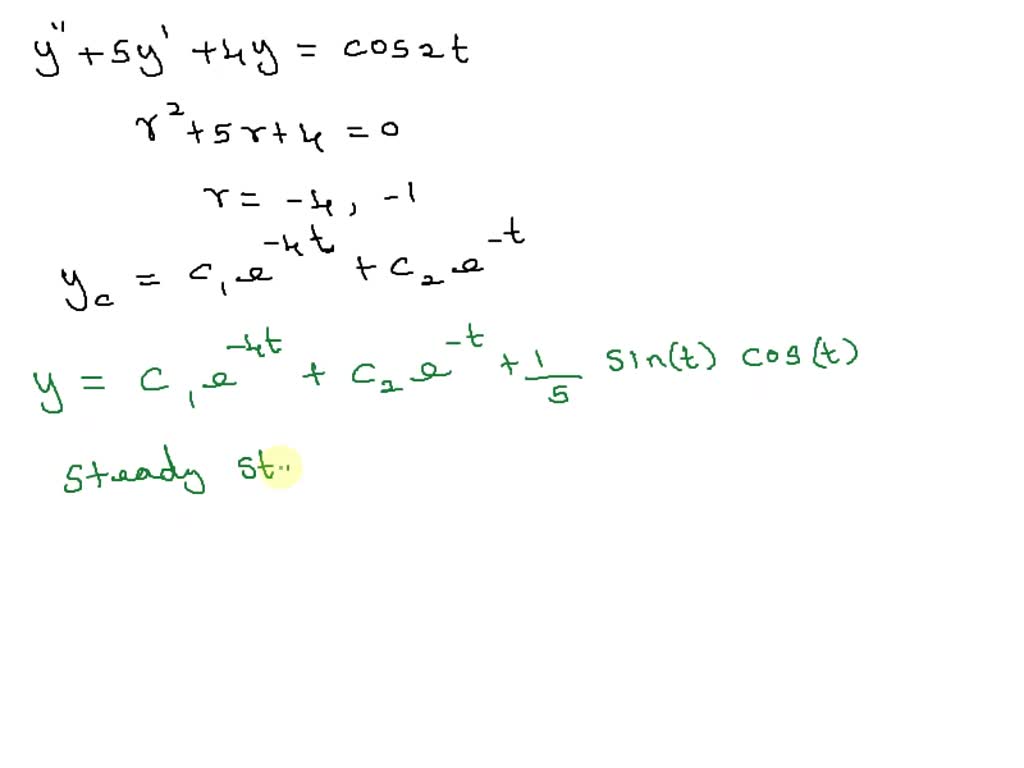 y'' + 5y' + 4y = cos2t
r² + 5r + 4 = 0
r = -4, -1
y_c = c₁e^{-4t} + c₂e^{-t}
y = c₁e^{-4t} + c₂e^{-t} + 1/5 sin(t) cos(t)
steady st